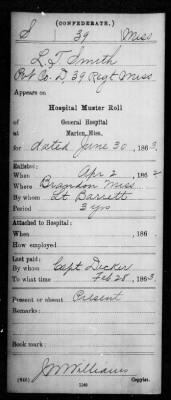 (CONFEDERATE.)
S | 39 | Miss
L. T. Smith
Pvt Co. D, 39 Regt Miss.
Appears on
Hospital Muster Roll
of
General Hospital
at Marion, Miss.
for dated June 30, 1863
Enlisted:
When Apr 2, 1862
Where Brandon Miss
By whom Lt Barrett
Period 3 yrs
Attached to Hospital:
When , 186
How employed
Last paid:
By whom Capt Decker
To what time Feb 28, 1863.
Present or absent Present
Remarks:
Book mark:
J M Williams
Copyist.